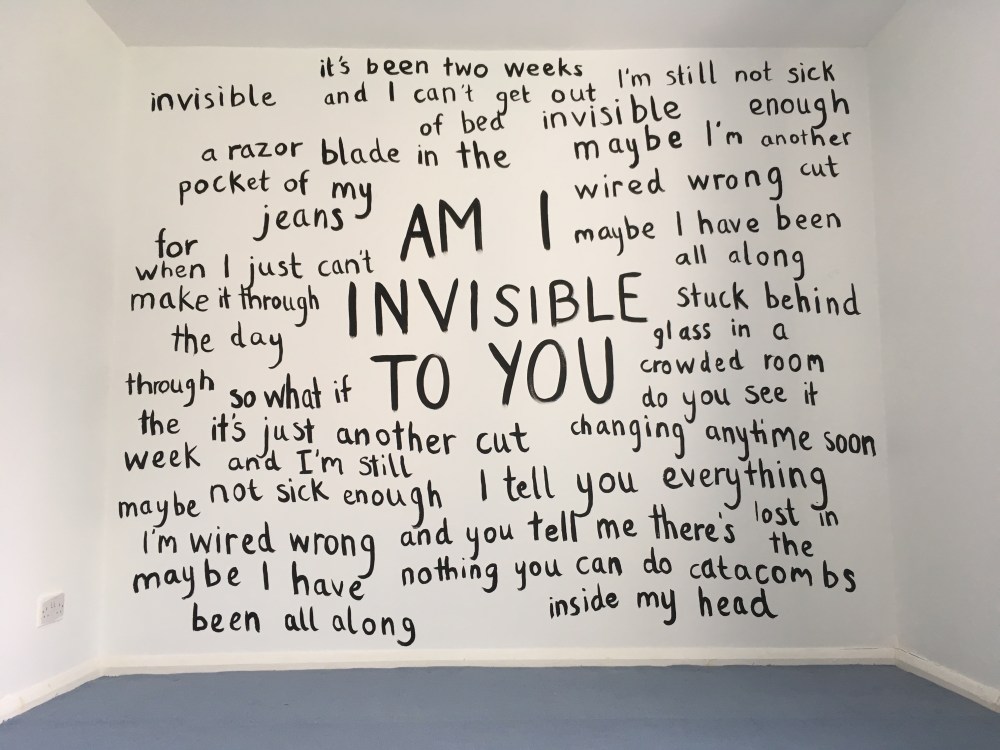 it's been two weeks
I'm still not sick
invisible
and I can't get out
enough
of bed
invisible
maybe I'm another
a razor blade in the
cut
pocket of my
wired wrong
jeans
AM I
maybe I have been
for
all along
when I just can't
INVISIBLE
stuck behind
make it through
glass in a
the day
TO YOU
crowded room
through
so what if
do you see it
the
it's just another cut
changing anytime soon
week
and I'm still
I tell you everything
maybe
not sick enough
lost in
I'm wired wrong
and you tell me there's
the
maybe I have
nothing you can do
catacombs
been all along
inside my head